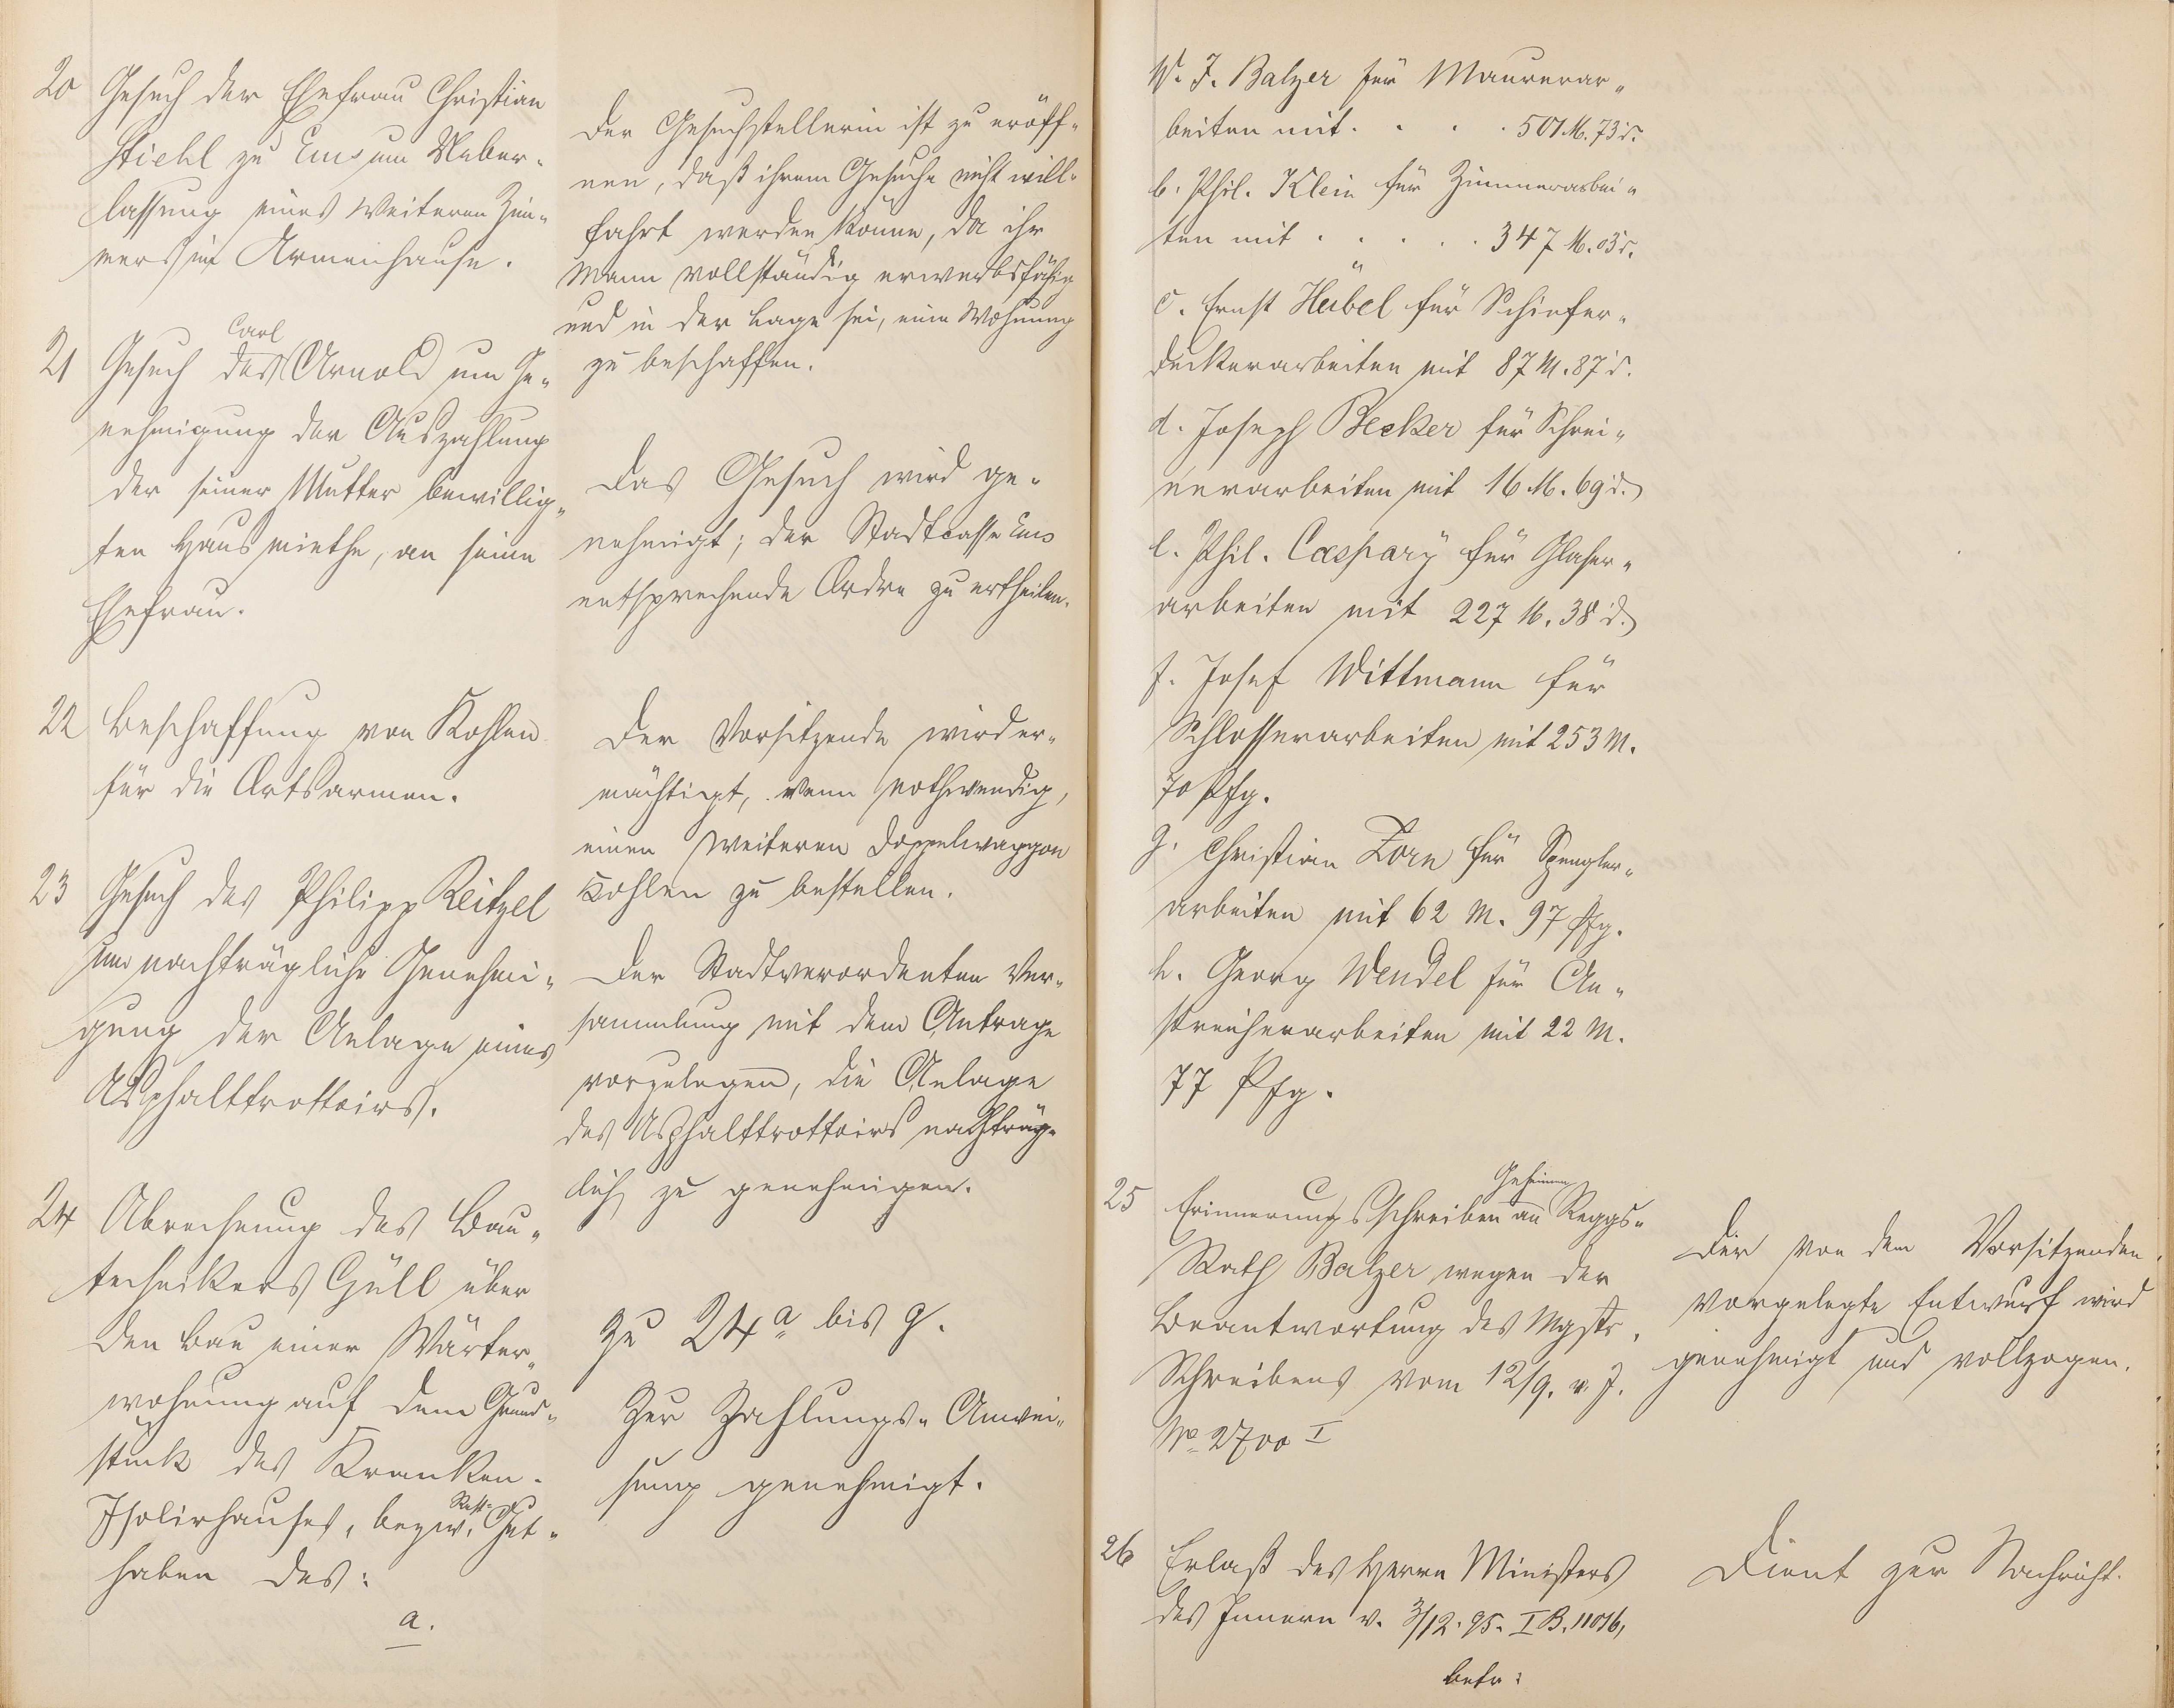 20 Gesuch der Ehefrau Christian
Stiehl zu Ems um Ueber-
lassung eines weiteren Zim-
mers im Armenhause.
Der Gesuchstellerin ist zu eröff-
nen, daß ihrem Gesuche nicht will-
fahrt werden könne, da ihr
Mann vollständig erwerbsfähig
und in der Lage sei, eine Wohnung
zu beschaffen.
Carl
21 Gesuch des Arnold um Ge-
nehmigung der Auszahlung
der seiner Mutter bewillig-
ten Hausmiethe, an seine
Ehefrau.
Das Gesuch wird ge-
nehmigt; der Stadtcasse Ems
entsprechende Ordre zu ertheilen.
22 Beschaffung von Kohlen
für die Ortsarmen.
Der Vorsitzende wird er-
mächtigt, wenn nothwendig,
einen weiteren Doppelwaggon
Kohlen zu bestellen.
23 Gesuch des Philipp Reitzel
um nachträgliche Genehmi-
gung der Anlage eines
Asphalttrottoirs.
Der Stadtverordneten Ver-
sammlung mit dem Antrage
vorzulegen, die Anlage
des Asphalttrottoirs nachträg-
lich zu genehmigen.
24 Abrechnung des Bau-
technikers Güll über
den Bau einer Wärter-
wohnung auf dem Grund-
stück des Kranken-
Isolirhauses, bezw. Rest- Gut-
haben des:
a.
Zu 24 a bis g.
Zur Zahlungs-Anwei-
sung genehmigt.
W. J. Balzer für Maurerar-
beiten mit . . . . 501 M. 73 d.
b. Phil. Klein für Zimmerarbei-
ten mit . . . . . 347 M. 03 d.
c. Ernst Heibel für Schiefer-
deckerarbeiten mit 87 M. 87 d.
d. Joseph Becker für Schrei-
nerarbeiten mit 16 M. 69 d.
e. Phil. Caspary für Glaser-
arbeiten mit 227 M. 38 d.
f. Josef Wittmann für
Schlosserarbeiten mit 253 M.
70 Pfg.
g. Christian Zorn für Spengler-
arbeiten mit 62 M. 97 Pfg.
h. Georg Wendel für An-
streicherarbeiten mit 22 M.
77 Pfg.
Geheimen
25 Erinnerungsschreiben an Reggs-
Rath Balzer wegen der
Beantwortung des Mgstr.
Schreibens vom 12/9. v. J.
No 2700 I
Der von dem Vorsitzenden
vorgelegte Entwurf wird
genehmigt und vollzogen.
26 Erlaß des Herrn Ministers
des Innern v. 3/12. 95. I B. 11016,
betr:
Dient zur Nachricht.